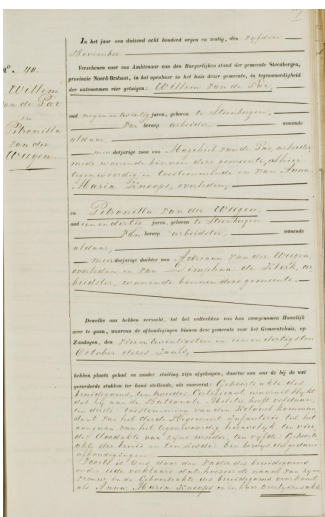 No. 40.
Willem
van de Par
en
Petronilla
van der
Weegen
In het jaar een duizend acht honderd negen en zestig, den vijfden
November
Verschenen voor ons Ambtenaar van den Burgerlijken stand der gemeente Steenbergen,
provincie Noord-Brabant, in het openbaar in het huis dezer gemeente, in tegenwoordigheid
der natenoemen vier getuigen: Willem van de Par,
oud negen en twintig jaren, geboren te Steenbergen,
van beroep arbeider, wonende
aldaar,
meerderjarige zoon van Marijnis van de Par, arbeider,
mede wonende binnen deze gemeente, alhier
tegenwoordig en toestemmende en van Anna
Maria Knoops, overleden,
en Petronilla van der Weegen,
oud een en dertig jaren, geboren te Steenbergen
van beroep arbeidster, wonende
aldaar,
meerderjarige dochter van Adriaan van der Weegen,
overleden en van de Klerk, ar-
beidster, wonende binnen deze gemeente.
Dewelke ons hebben verzocht, tot het voltrekken van hun voorgenomen Huwelijk
over te gaan, waarvan de afkondigingen binnen deze gemeente voor het Gemeentehuis, op
Zondagen, den vier en twintigsten en een en dertigsten
October dezes jaars,
hebben plaats gehad en zonder stuiting zijn afgeloopen, daartoe aan ons de bij de wet
gevorderde stukken ter hand stellende, als vooreerst: Geboorteakte des
bruidegoms, ten tweede: Certificaat, waaruit blijkt
dat hij aan de Nationale Militie heeft voldaan,
ten derde: toestemming van den Kolonel komman-
dant van het derde Regiment infanterie tot het
aangaan van het tegenwoordig huwelijk, ten vier-
de: doodakte van zijne moeder, ten vijfde: Geboorte-
akte der bruid en ten zesde: een bewijs der gedane
afkondigingen.
Voorts is ons door den vader des bruidegoms
onder eede verklaard dat hoezeer de naam van zijne
vrouw in de Geboorteakte des bruidegoms voorkomt
als Anna Maria Knoops en in hun